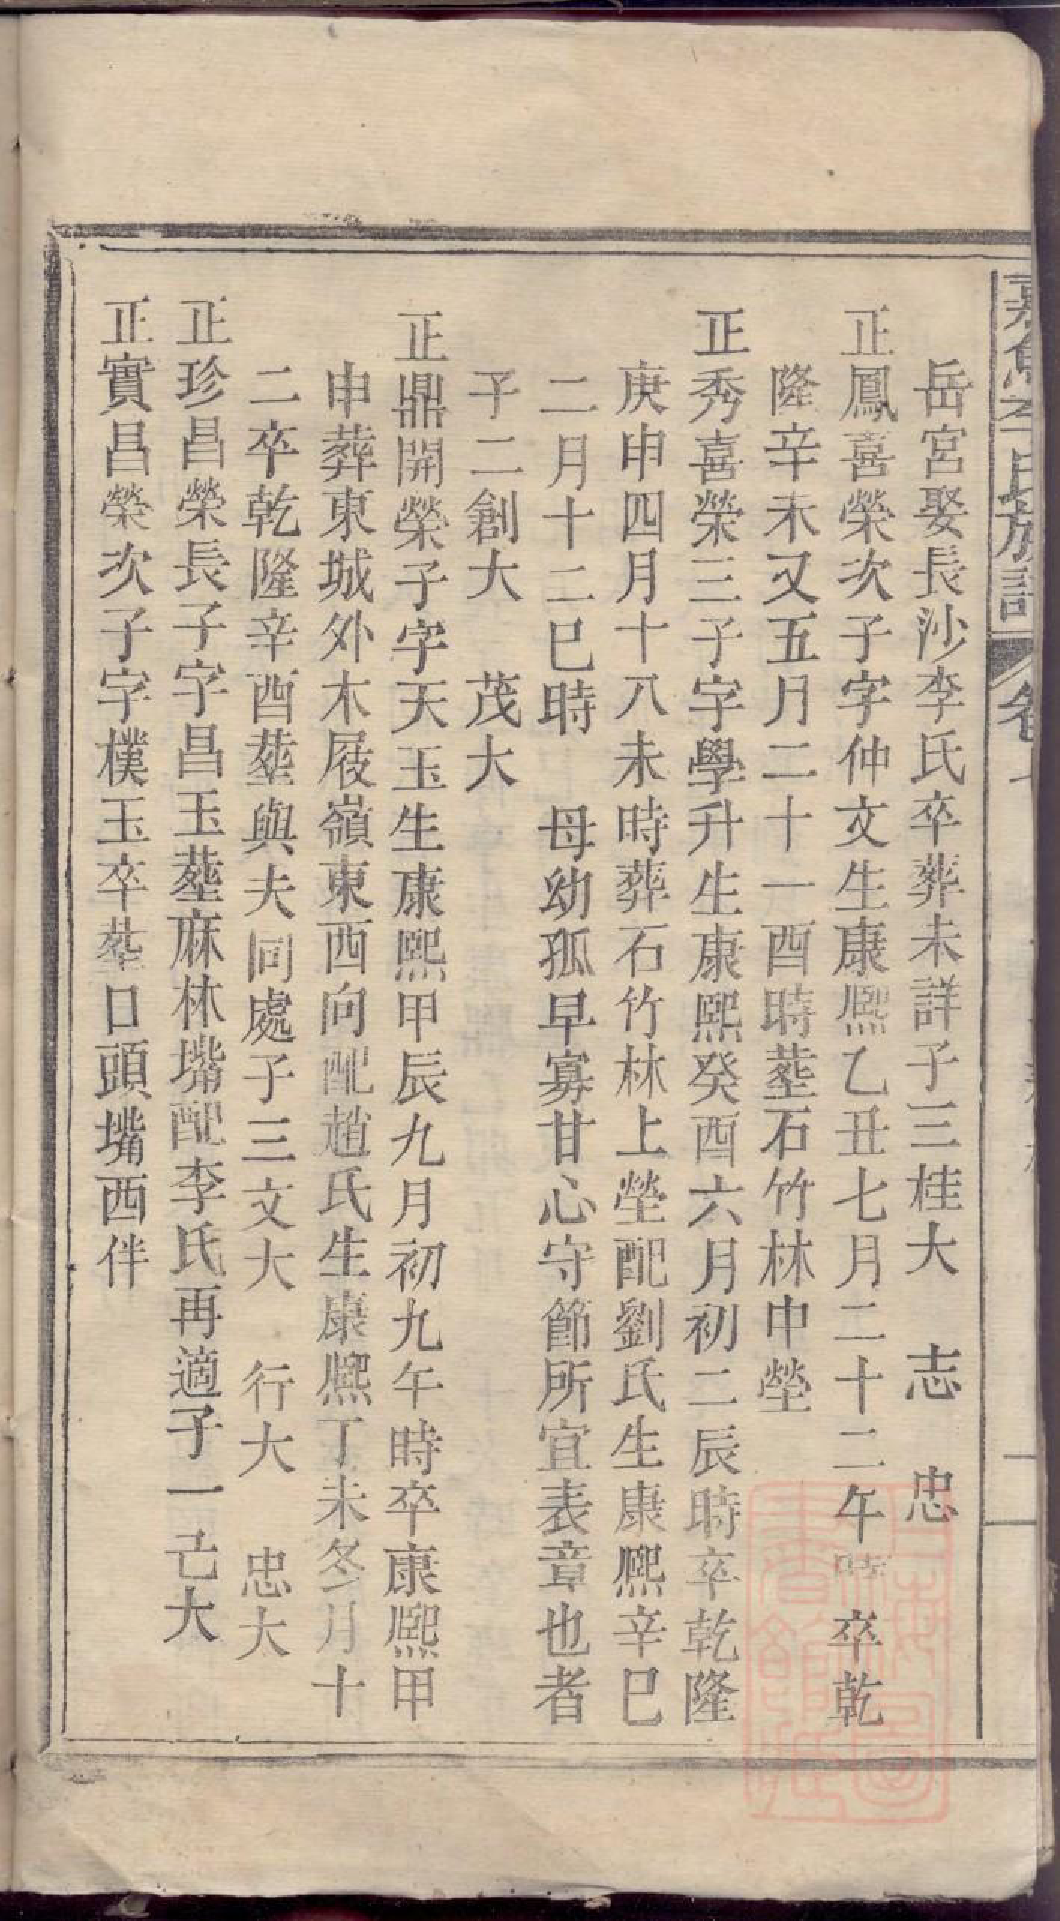 岳宮娶長沙李氏卒葬未詳子三桂大　志　忠
正鳳喜榮次子字仲文生康熙乙丑七月二十二午時卒乾
隆辛未又五月二十一酉時塟石竹林中塋
正秀喜榮三子字學升生康熙癸酉六月初二辰時卒乾隆
庚申四月十八未時葬石竹林上塋配劉氏生康熙辛巳
二月十二巳時　母幼孤早寡甘心守節所宜表章也者
子二創大　茂大
正鼎開榮子字天玉生康熙甲辰九月初九午時卒康熙甲
申葬東城外木屐嶺東西向配趙氏生康熙丁未冬月十
二卒乾隆辛酉塟與夫同處子三文大　行大　忠大
正珍昌榮長子字昌玉塟麻林嘴配李氏再適子一亡大
正實昌榮次子字樸玉卒塟口頭嘴西伴